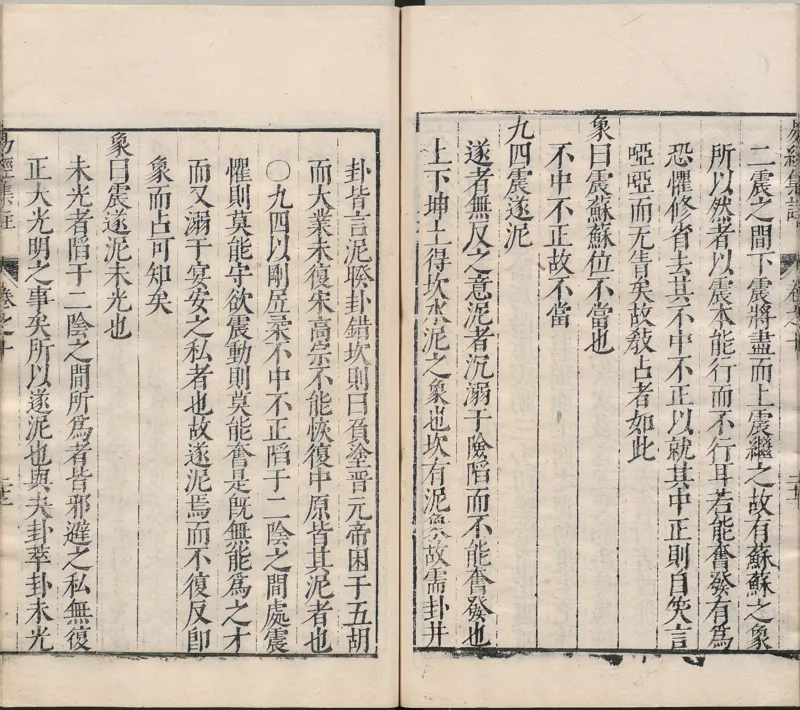 二震之間下震將盡而上震繼之故有蘇蘇之象
所以然者以震本能行而不行耳若能奮發有為
恐懼修省去其不中不正以就其中正則自笑言
啞啞而无眚矣故敎占者如此
象曰震蘇蘇位不當也
不中不正故不當
九四震遂泥
遂者無反之意泥者沉溺于險陷而不能奮發也
上下坤土得坎水泥之象也坎有泥象故需卦井
卦皆言泥睽卦錯坎則曰負塗晉元帝困于五胡
而大業未復宋高宗不能恢復中原皆其泥者也
〇九四以剛居柔不中不正陷于二陰之間處震
懼則莫能守欲震動則莫能奮是旣無能為之才
而又溺于宴安之私者也故遂泥焉而不復反卽
象而占可知矣
象曰震遂泥未光也
未光者陷于二陰之間所為者皆邪避之私無復
正大光明之事矣所以遂泥也與夬卦萃卦未光
易經集註 卷之十